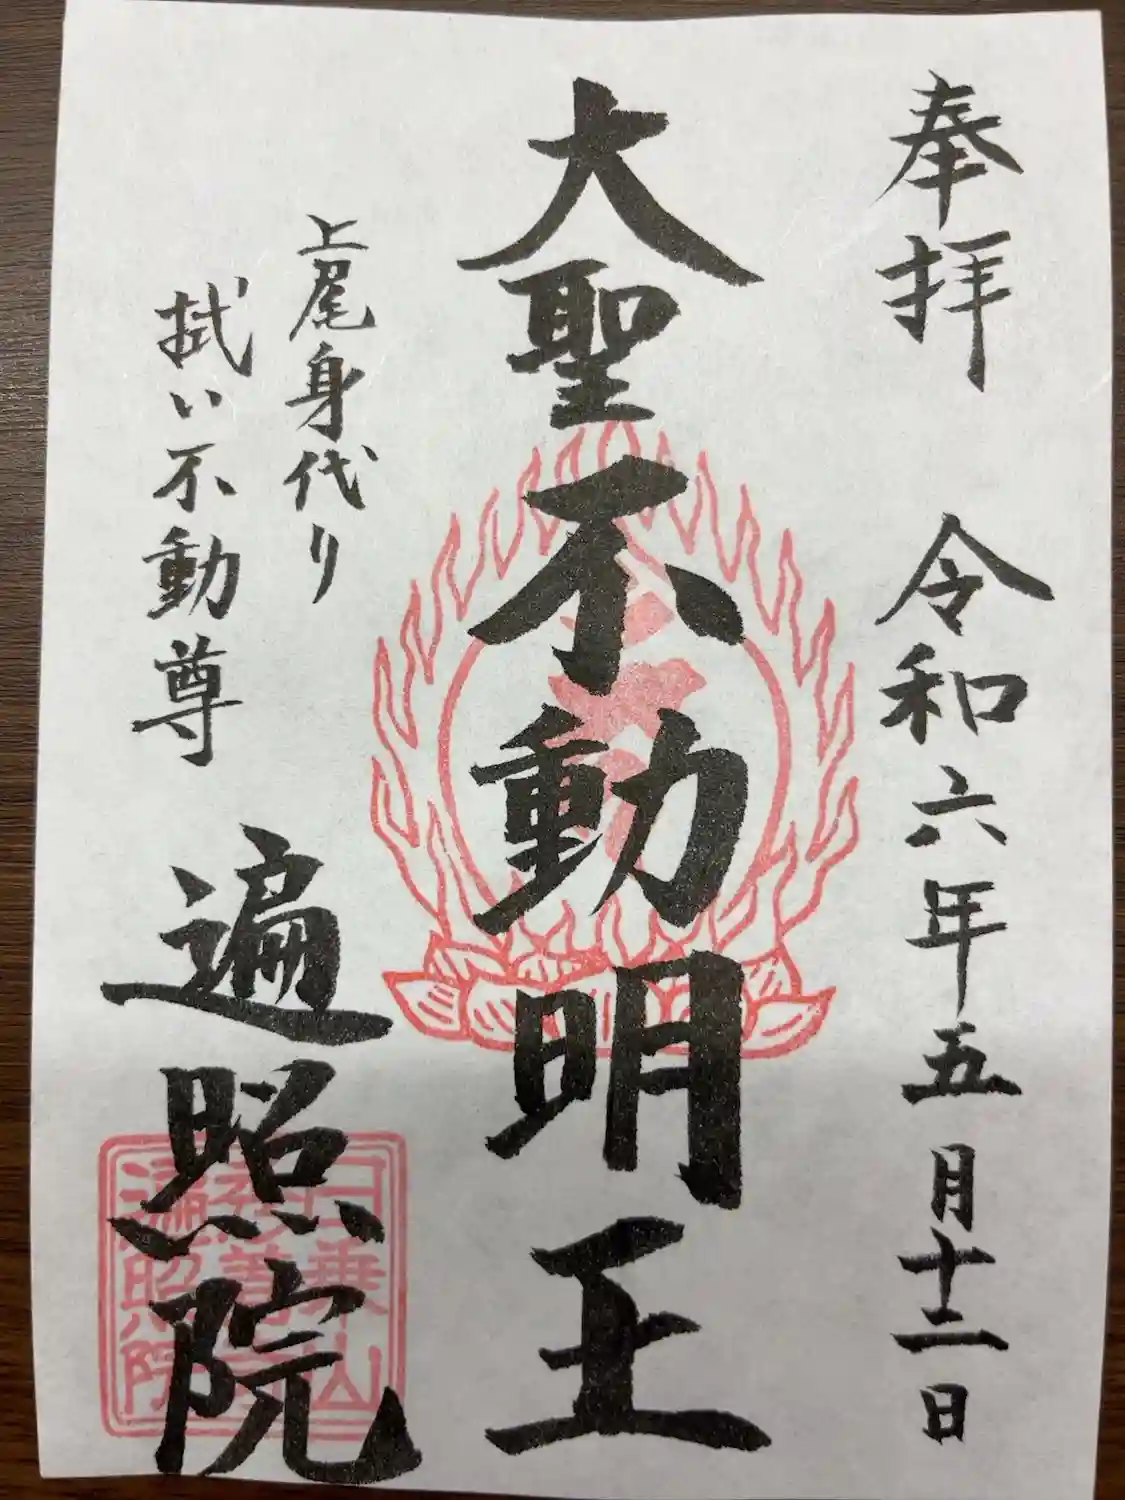 奉拝 令和六年五月十二日
大聖不動明王
上尾身代り
拭い不動尊
遍照院
日乗山
遍照院